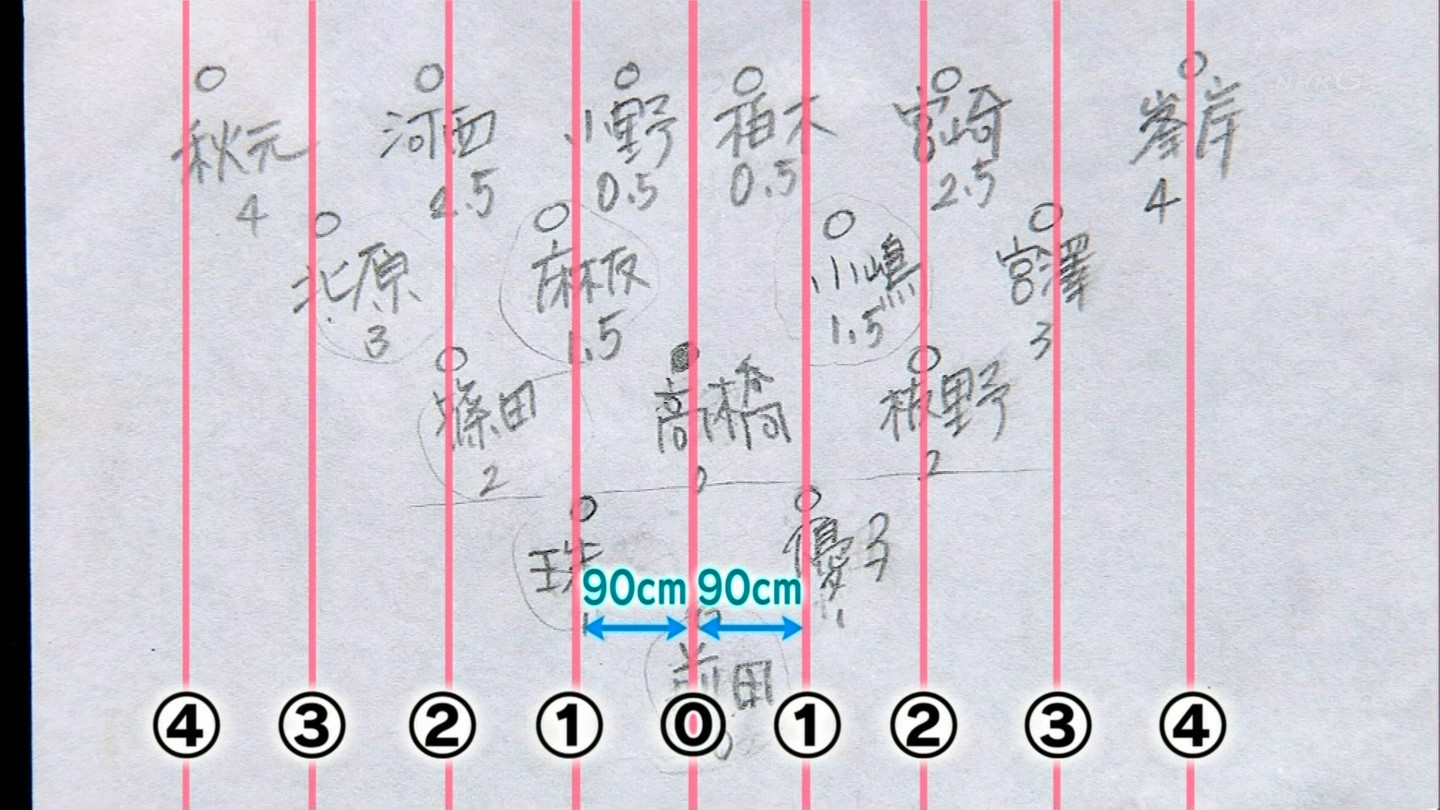 NHK G
秋元 河西 小野 柏木 宮崎 峯岸
4 2.5 0.5 0.5 2.5 4
北原 麻板 小嶋 宮澤
3 1.5 1.5 3
篠田 高橋 板野
2 0 2
珠 優子
90cm 90cm
1 1
前田
0
④ ③ ② ① ⓪ ① ② ③ ④